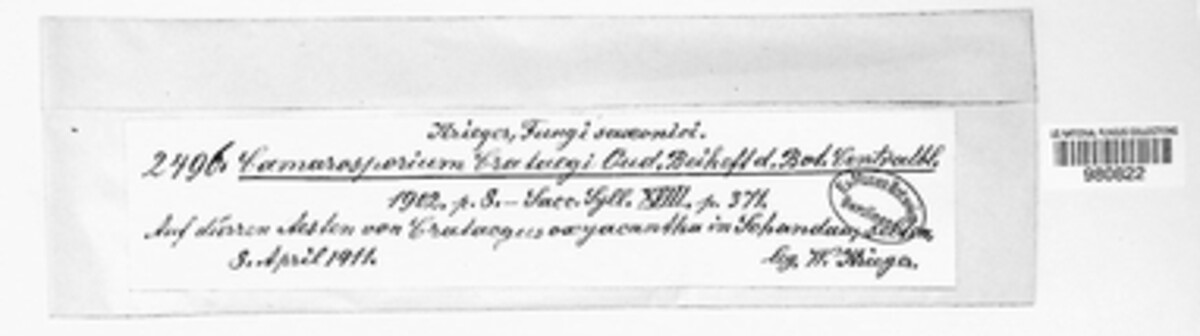 Krieger, Fungi saxonici.
2496. Camarosporium Crataegi Oud. Beiheft d. Bot. Centralbl.
1902. p. 8. – Sacc. Syll. XVIII. p. 371.
Auf dürren Aesten von Crataegus oxyacantha in Schandau,
8. April 1911. leg. W. Krieger.
US NATIONAL FUNGUS COLLECTIONS
980822